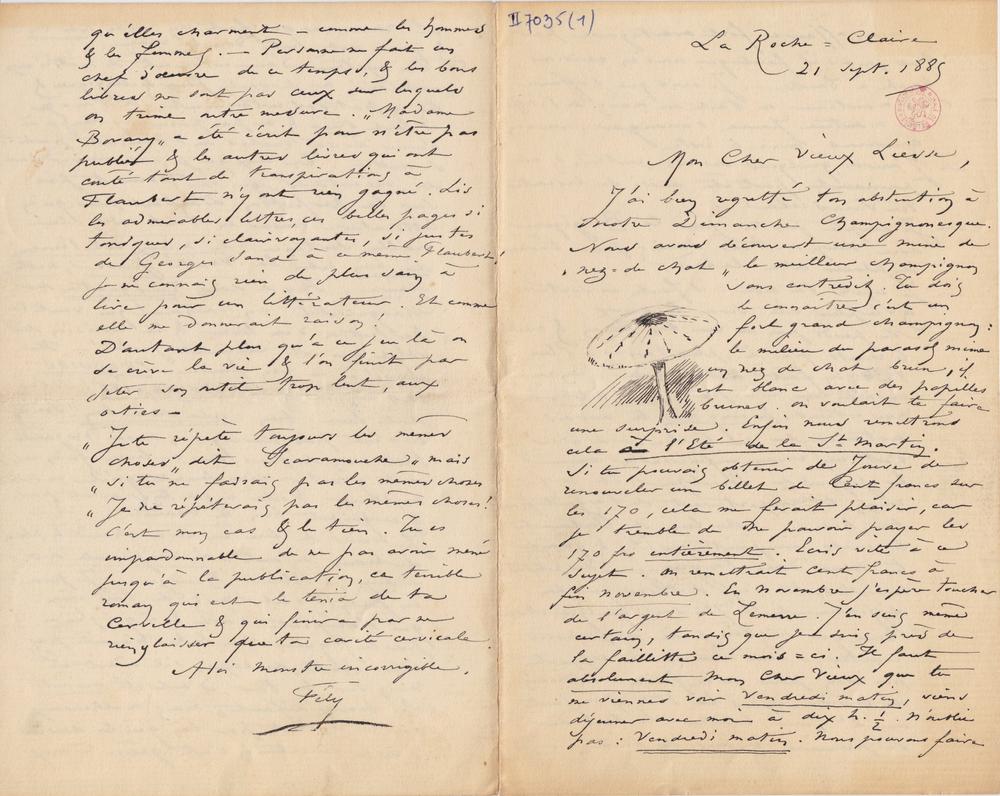 II 7035(1)
La Roche = Claire
21 Sept. 1885
Mon Cher Vieux Liesse,
J'ai bien regretté ton abstention à
notre Dimanche Champignonesque.
Nous avons découvert une mine de
"nez-de chat" le meilleur champignon
sans contredit. Tu dois
le connaître c'est un
fort grand champignon :
le milieu du parasol mime
un nez de chat brun, il
est blanc avec des papilles
brunes. on voulait te faire
une surprise. Enfin nous remettrons
cela à l'Eté de la St Martin.
Si tu pouvais obtenir de Jouve de
renouveler un billet de Cent francs sur
les 170, cela me ferait plaisir, car
je tremble de ne pouvoir payer les
170 frs entièrement. Ecris vite à ce
sujet. on remettrait cent francs à
fin novembre. En Novembre j'espère toucher
de l'argent de Lemerre. J'en suis même
certain, tandis que je suis près de
la faillitte ce mois=ci. Il faut
absolument mon Cher Vieux que tu
me viennes voir Vendredi matin, viens
déjeuner avec moi à dix h. ½. N'oublie
pas : Vendredi matin. Nous pouvons faire
qu'elles charment — comme les hommes
& les femmes. — Personne ne fait un
chef d'œuvre de ce temps, & les bons
livres ne sont pas ceux sur lesquels
on trime outre mesure. "Madame
Bovary" a été écrit pour n'être pas
publié & les autres livres qui ont
coûté tant de transpirations à
Flaubert n'y ont rien gagné. Lis
les admirables lettres, ces belles pages si
, si clairvoyantes, si justes
de Georges Sand à ce même Flaubert!
Je ne connais rien de plus sain à
lire pour un littérateur. Et comme
elle me donnerait raison!
D'autant plus qu'à ce jeu là on
se crève la vie & l'on finit par
jeter son outil trop lent, aux
orties —
"Je te répète toujours les mêmes
choses" dit Scaramouche "mais
"si tu ne faisais pas les mêmes choses
"Je ne répéterais pas les mêmes choses!
C'est mon cas & le tien. Tu es
impardonnable de ne pas avoir mené
jusqu'à la publication, ce terrible
roman qui est le ténia de ta
Cervelle & qui finira par ne
rien y laisser que ta cavité cervicale.
A toi monstre incorrigible.
Fély